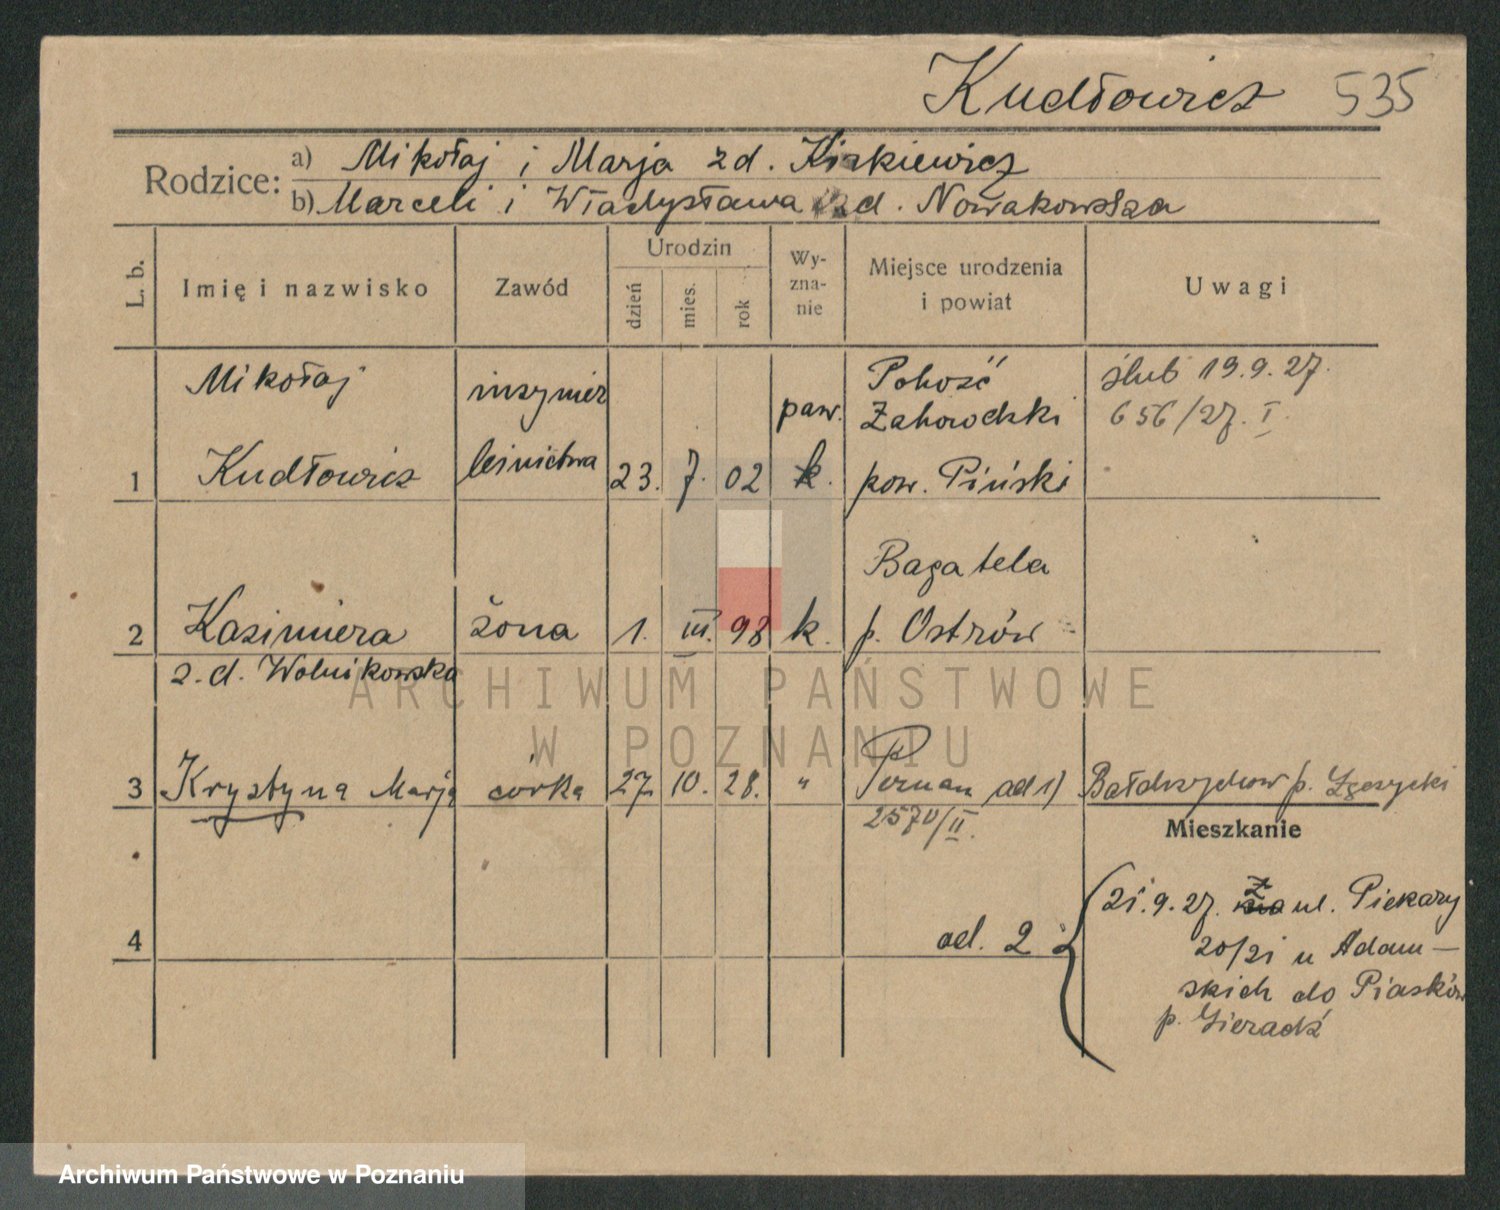 Kudłowicz 535
Rodzice: a) Mikołaj i Marja zd. Kiskiewicz
b) Marceli i Władysława zd. Nowakowska
L. b. Imię i nazwisko Zawód Urodzin dzień mies. rok Wy-zna-nie Miejsce urodzenia i powiat Uwagi
Mikołaj inżynier Pohość ślub 19.9.27.
paw. Zahorodzki 656/27. I
1 Kudłowicz leśnictwa 23. 7. 02 k. pow. Piński
Bagatela
2 Kazimiera żona 1. III. 98 k. p. Ostrów
z. d. Wolnikowska
3 Krystyna Marja córka 27. 10. 28. " Poznań ad 1) Bałdrzychow p.
2570/II.
Mieszkanie
21.9.27. z ul. Piekary
4 ad. 2 20/21 u Adam-
skich do Piasków
p. Sieradź
ARCHIWUM PAŃSTWOWE
W POZNANIU
Archiwum Państwowe w Poznaniu